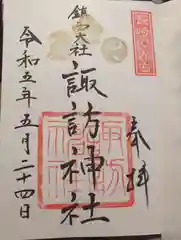 奉拝
鎮西大社
諏訪神社
令和五年五月二十四日